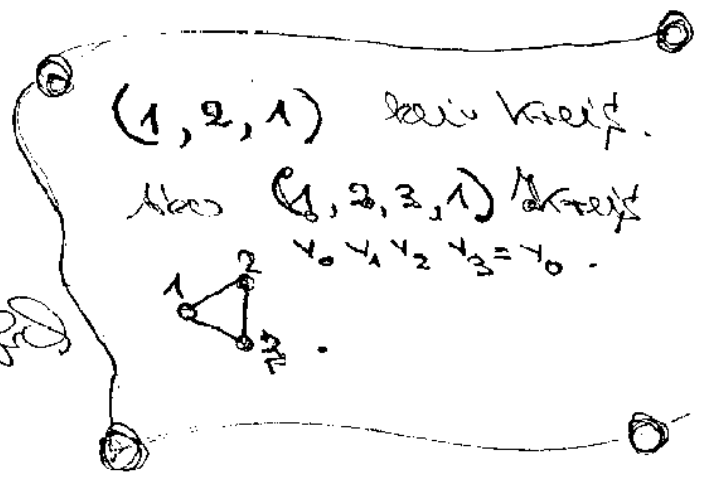 (1, 2, 1) kein Kreiß.
Aber (1, 2, 3, 1) Kreiß
v₀ v₁ v₂ v₃ = v₀ .
2
1
3 .